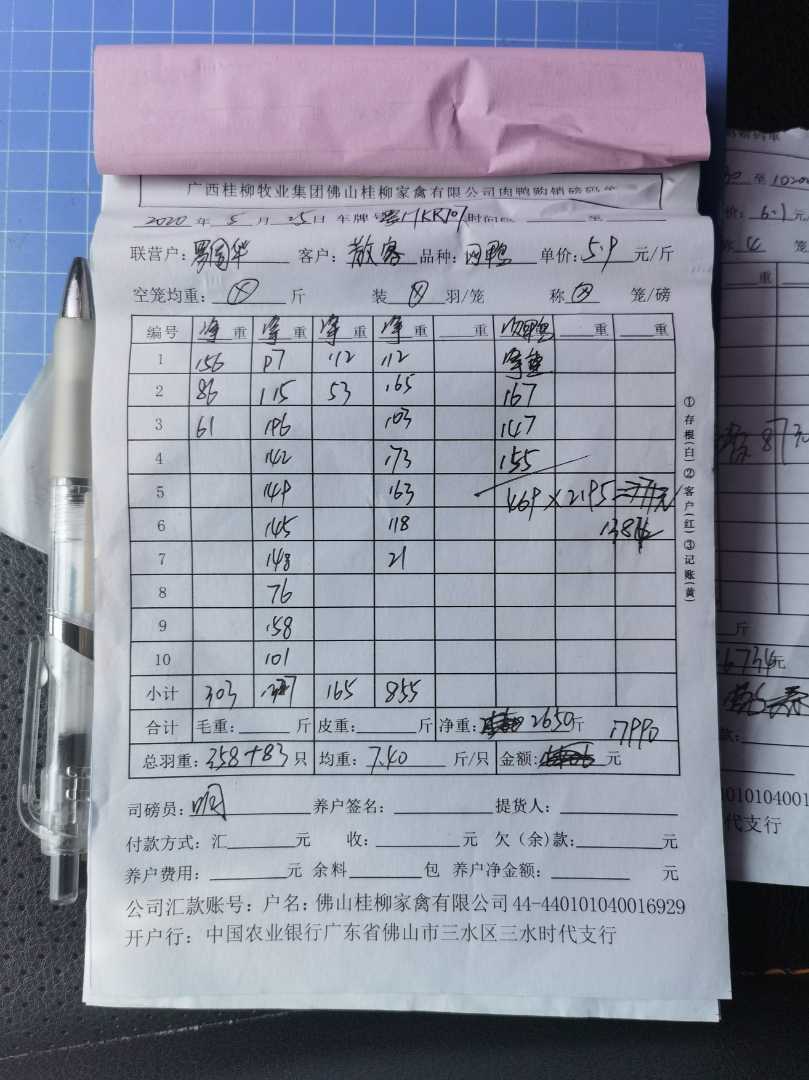 广西桂柳牧业集团佛山桂柳家禽有限公司肉鸭购销磅码单
2020 年 5 月 25 日 车牌 KR107 时间
联营户: 罗国华 客户: 散客 品种: 肉鸭 单价: 5.9 元/斤
空笼均重: 斤 装 羽/笼 称 笼/磅
编号 净重 净重 净重 净重 重 重 重
1 156 97 112 112 净重
2 86 115 53 165 167
3 61 196 103 147
4 142 173 155
5 149 163 469 × 2.95 =
6 145 118 1384
7 148 21
8 76
9 158
10 101
小计 303 1327 165 855
合计 毛重: 斤 皮重: 斤 净重: 2650 斤 17990
总羽重: 358+83 只 均重: 7.40 斤/只 金额: 元
司磅员: 养户签名: 提货人:
付款方式: 汇 元 收: 元 欠(余)款: 元
养户费用: 元 余料 包 养户净金额: 元
公司汇款账号: 户名: 佛山桂柳家禽有限公司 44-440101040016929
开户行: 中国农业银行广东省佛山市三水区三水时代支行
①存根(白)②客户(红)③记账(黄)
至 1020
价: 6.1
笼
重 重
斤
6734 元
款:
1010104001
代支行